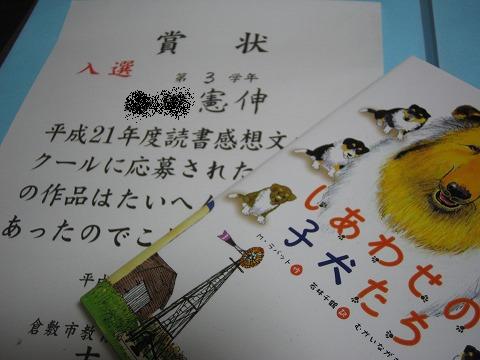 賞 状
入選
第3学年
憲伸
平成21年度読書感想文
クールに応募された
の作品はたいへ
あったのでこ
平
倉敷市教
しあわせの
子犬たち
M・ラバット 作
むかいなが